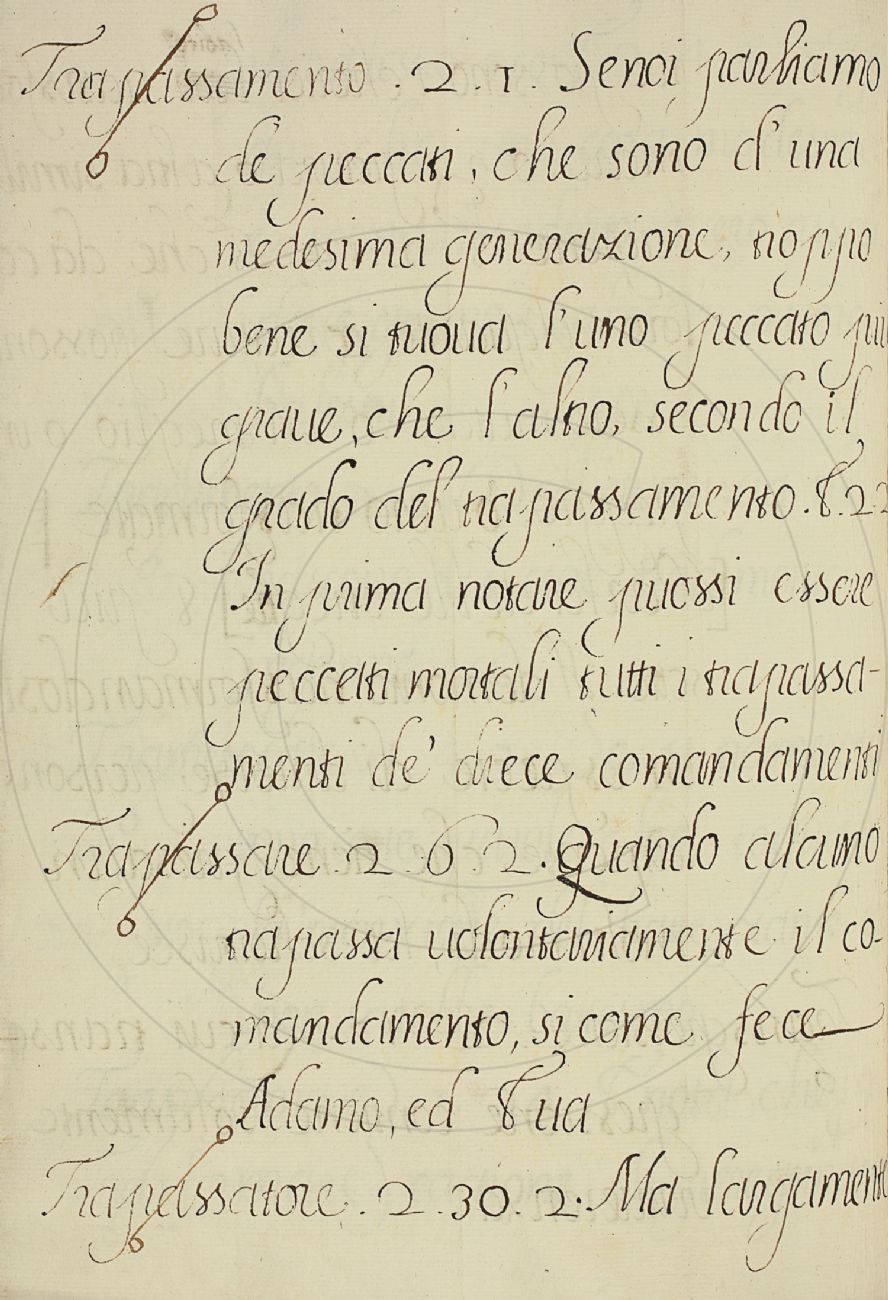 Trapassamento . 2 . 1 . Se noi parliamo
de' peccati, che sono d'una
medesima generazione, troppo
bene si truova l'uno peccato più
grave, che l'altro, secondo il
grado del trapassamento. E. 22
In prima notare puossi essere
peccati mortali tutti i trapassa-
menti de' diece comandamenti
Trapassare . 2 . 6 . 2 . Quando alcuno
trapassa volontariamente il co-
mandamento, si come fece
Adamo, ed Eva
Trapassatore . 2 . 30 . 2 . Ma largamente